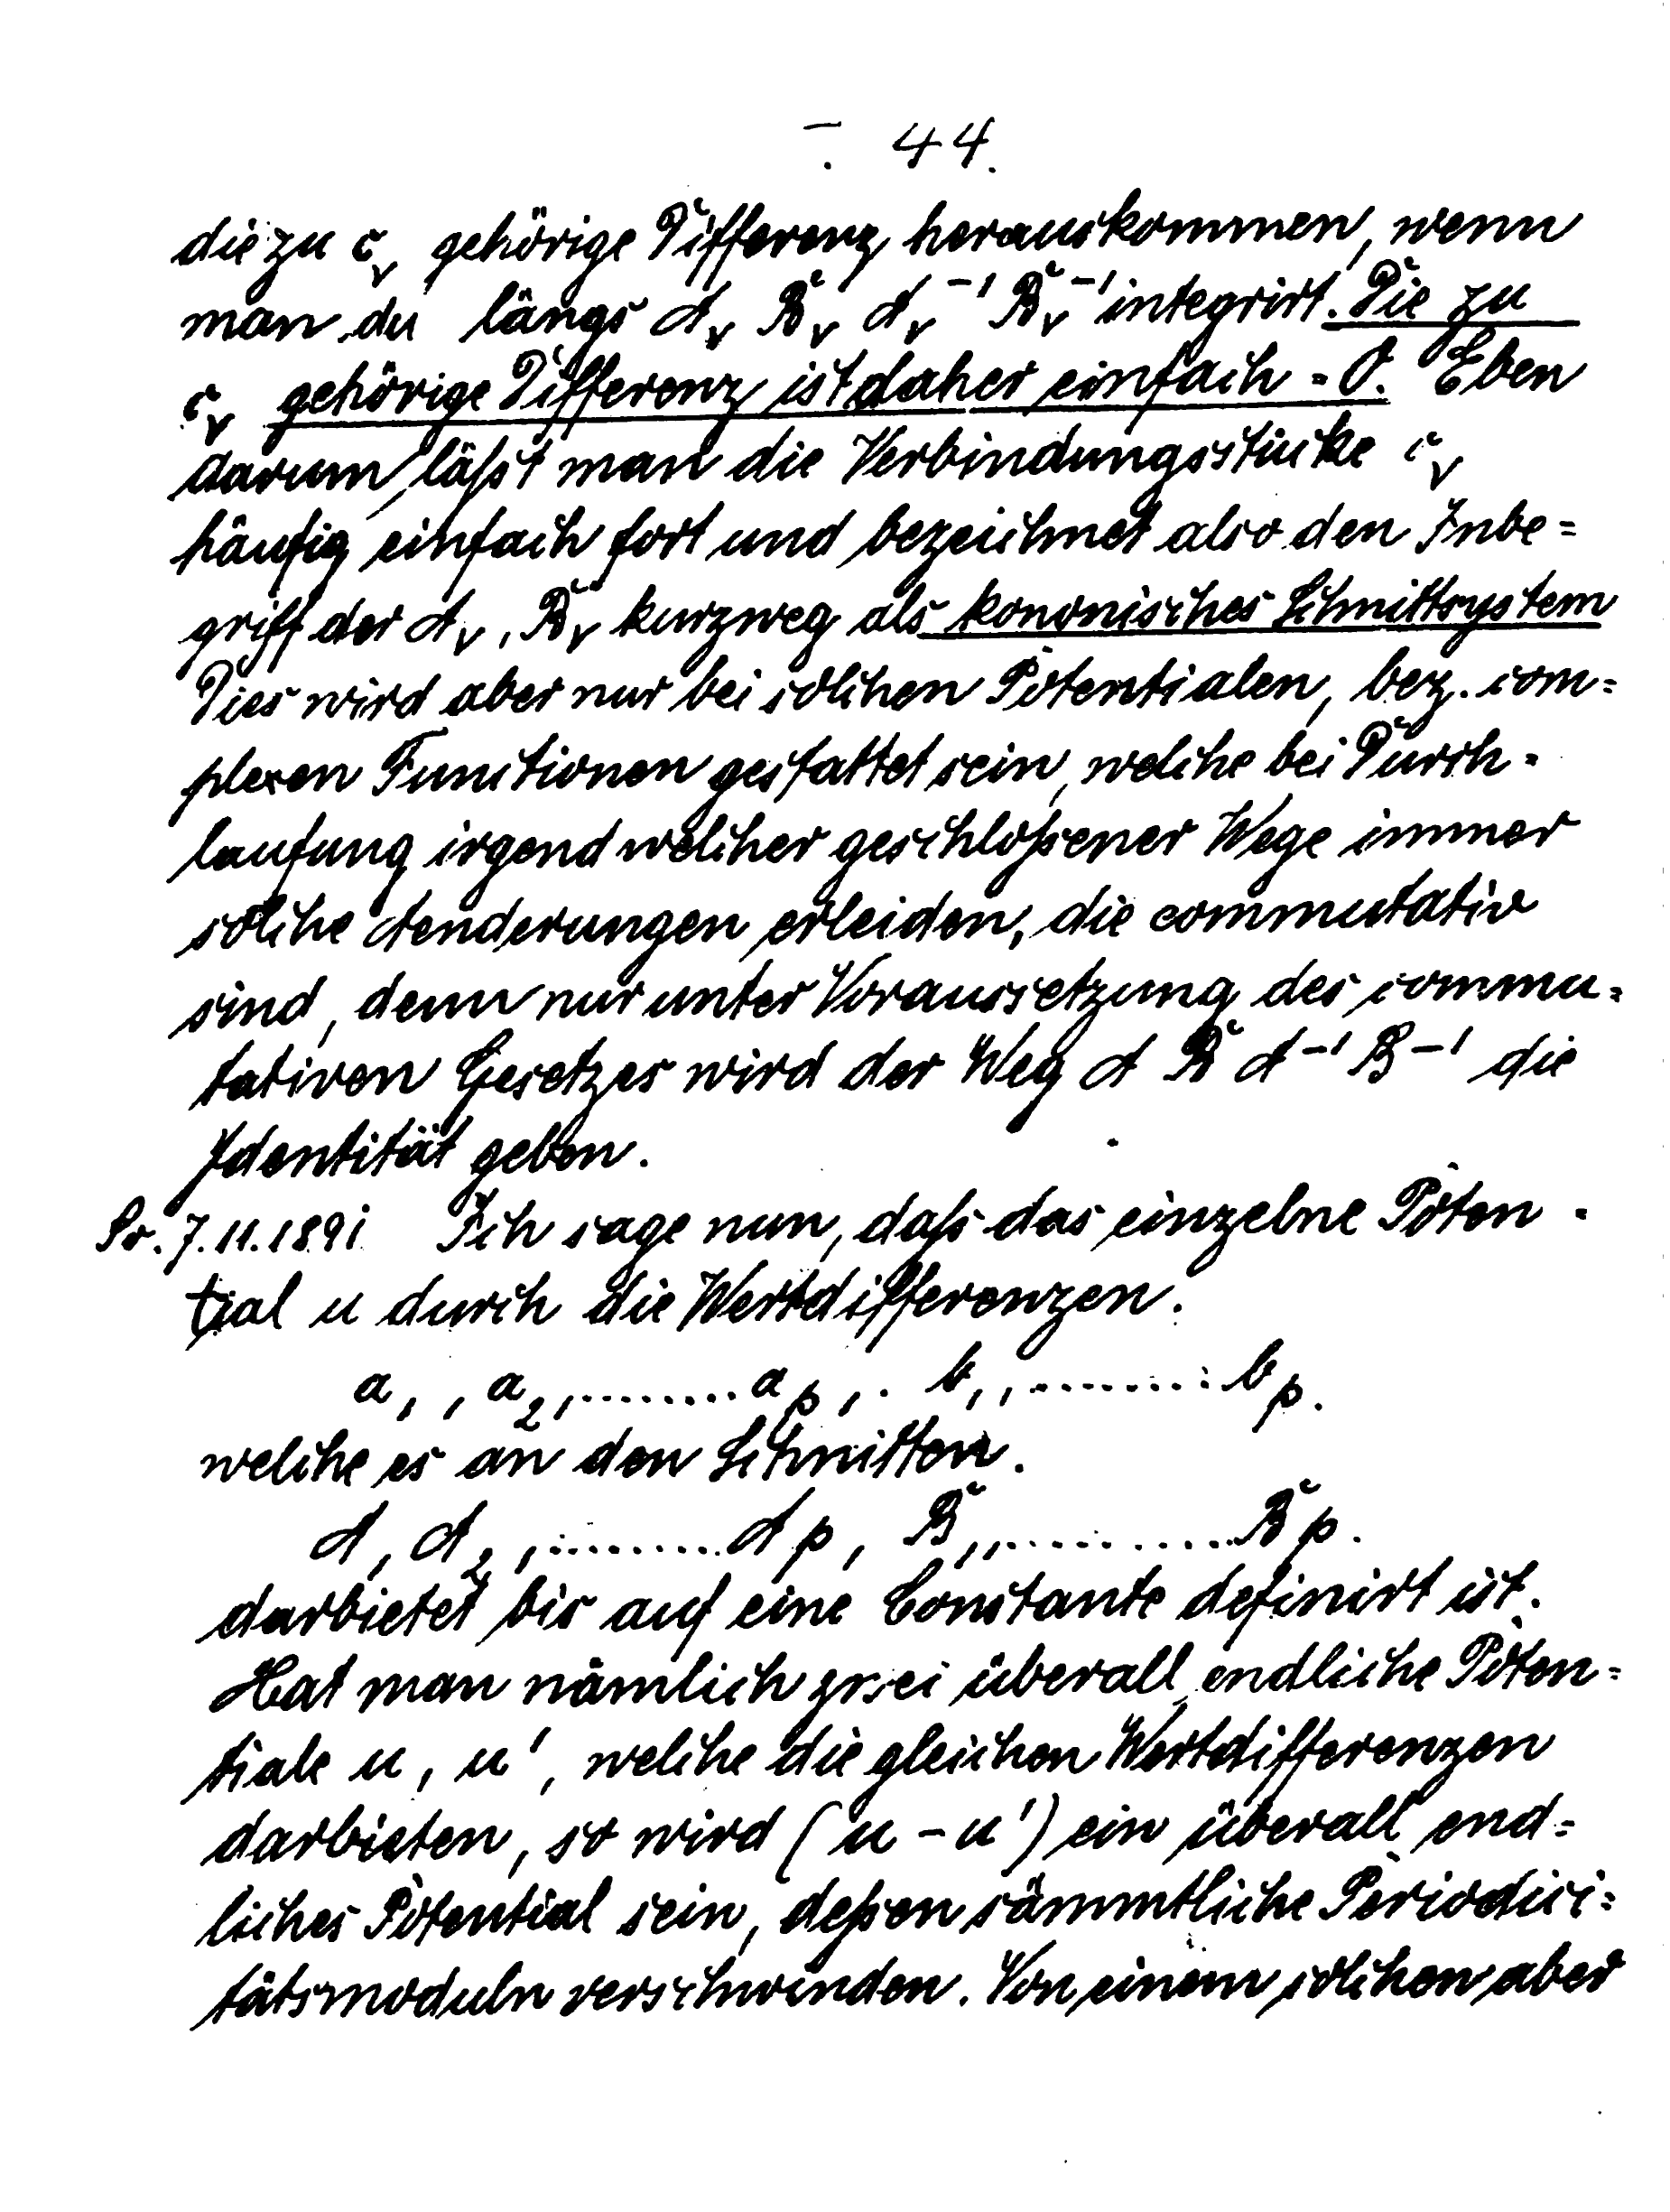 44.
die zu c_ν gehörige Differenz herauskommen, wenn
man du längs A_ν B_ν A_ν^{-1} B_ν^{-1} integrirt. Die zu
c_ν gehörige Differenz ist daher einfach = 0. Eben
darum läßt man die Verbindungsstücke c_ν
häufig einfach fort und bezeichnet also den Inbe=
griff der A_ν, B_ν kurzweg als kononisches Schnittsystem
Dies wird aber nur bei solchen Potentialen, bez. com=
plexen Functionen gestattet sein, welche bei Durch=
laufung irgend welcher geschloßener Wege immer
solche Aenderungen erleiden, die commutativ
sind, denn nur unter Voraussetzung des commu=
tativen Gesetzes wird der Weg A B A^{-1} B^{-1} die
Identität geben.
So. 7.11.1891 Ich sage nun, daß das einzelne Poten=
tial u durch die Wertdifferenzen.
a_1, a_2, ......... a_p, b_1, ......... b_p.
welche es an den Schnitten.
A_1 A_2, ......... A_p, B_1, ......... B_p.
darbietet bis auf eine Constante definirt ist.
Hat man nämlich zwei überall endliche Poten=
tiale u, u', welche die gleichen Wertdifferenzen
darbieten, so wird (u - u') ein überall end=
liches Potential sein, deßen sämmtliche Periodici=
tätsmoduln verschwinden. Von einem solchen aber